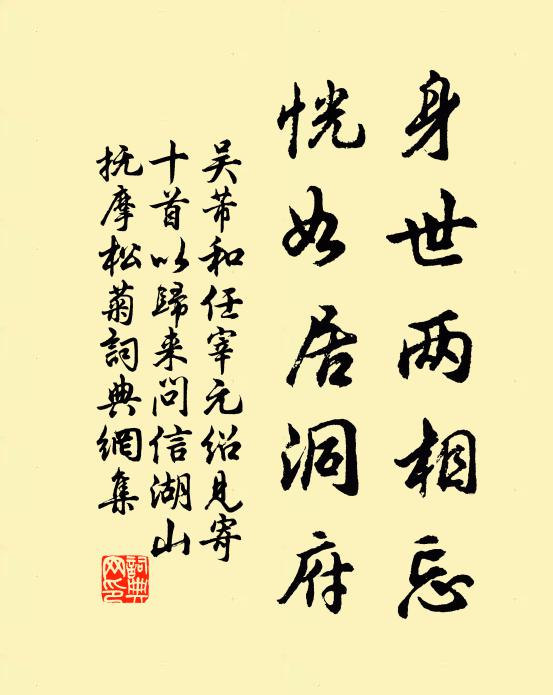 身世两相忘
恍如居洞府
吴芾和任宰元绍见寄
十首以歸来问信湖山
抚摩松菊詞典網集
詞典
网印